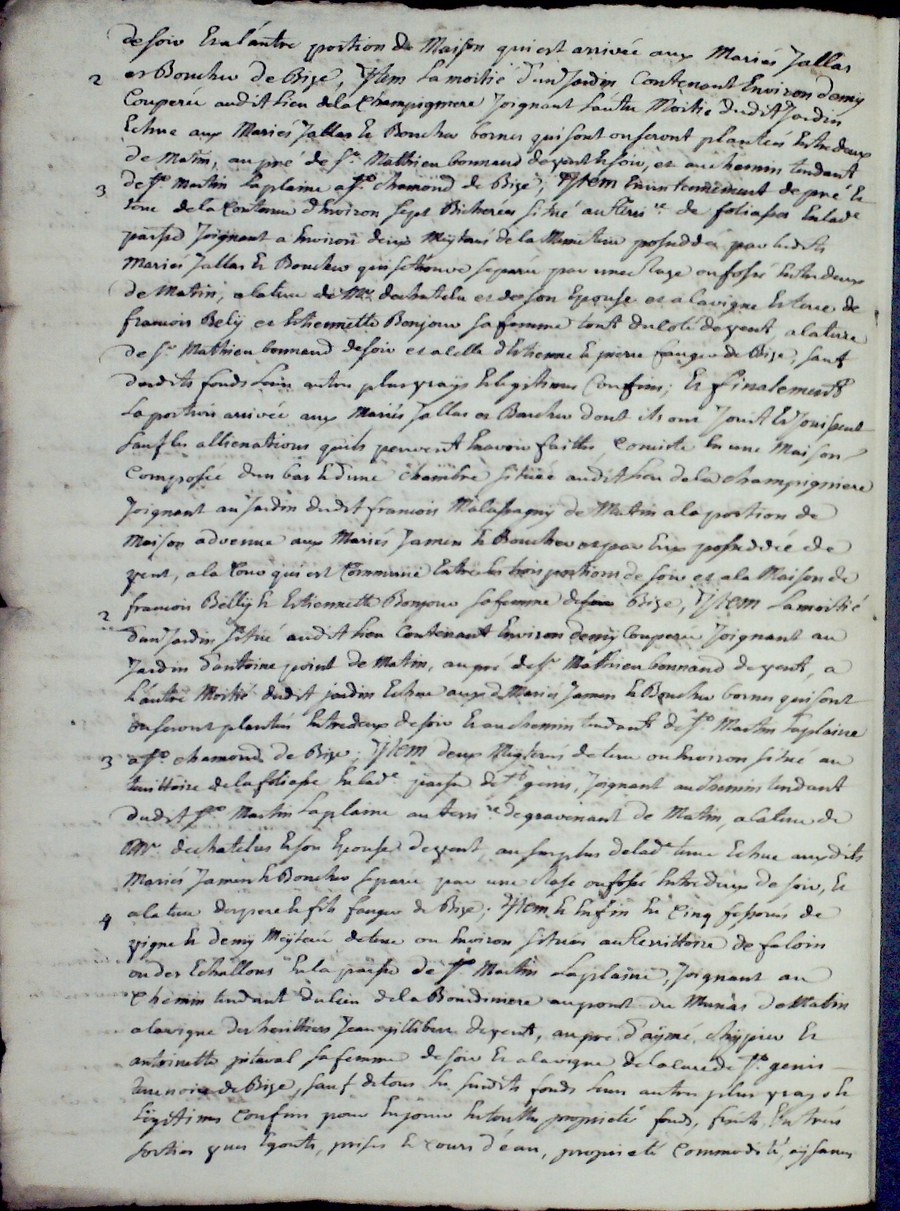 de soir Et a l'autre portion de Maison qui est arrivée aux Mariés Jallas
2 et Boucher de Bize, Jtem La moitié d'un Jardin Contenant Environ demy
Couperée audit Lieu de la Champigniere Joignant L'autre Moitié dudit Jardin
Echue aux Mariés Jallas & Boucher bornes qui sont ou seront plantées Entredeux
de Matin, au pré de Sr. Mathieu bonnand de vent & soir, et au chemin tendant
3 de St. Martin Laplaine a St. chamond de Bize; Jtem Environ tenement de pré Et
terre de la Contenue d'Environ sept Bicherées situé au Terrre. de foliasse En lade
parsse Joignant a Environ deux Meyterés de la Mme terre possedée par lesdits
Mariés Jallas & Boucher qui se trouve separée par une Rase ou fossé Entredeux
de Matin, a la terre de Mr. dechatelu et de son Epouse et a la vigne Et terre de
francois Bely et Estiennette Bonjour sa femme tout du Coté de vent a la terre
de Sr. Mathieu bonnand de soir et a celle d'Estienne & pierre fauger de Bize, sauf
desdits fonds Leurs autres plus vrays & legitimes Confins; Et finalement
La portion arrivée aux Mariés Jallas et Boucher dont ils ont Jouit Et Jouissent
sauf les allienations qu'ils peuvent En avoir faittes, Consiste En une Maison
Composée d'un bas & d'une chambre située audit Lieu de la champigniere
Joignant au Jardin dudit francois Malassagny de Matin a la portion de
Maison advenue aux Mariés Jamen & Boucher et par Eux possedée de
vent, a la Cour qui est Commune Entre les trois portions de soir et a la Maison de
francois Belly & Estiennette Bonjour sa femme de Bize, Jtem La moitié
2 d'un Jardin situé audit Lieu Contenant Environ demy Couperée Joignant au
Jardin d'antoine point de Matin, au pré de Sr. Mathieu bonnand de vent, a
L'autre Moitié dudit jardin Echue aux Mariés Jamen & Boucher bornes qui sont
ou seront plantées Entredeux de soir Et au chemin tendant de St. Martin Laplaine
3 a St. chamond de Bize; Jtem deux Meyterés de terre ou Environ situé au
territtoire de la foliasse En lade parsse de St. genis, Joignant au Chemin tendant
dudit St. Martin Laplaine au terrre. de gravenant de Matin, a la terre de
Mr. dechatelus & son Epouse de vent, au surplus de lade terre Echue auxdits
Mariés Jamen & Boucher separée par une Rase ou fossé Entredeux de soir, Et
4 a la terre des pere & fils fauger de Bize; Jtem & Enfin En Cinq fesorés de
vigne & demy Meyteré de terre ou Environ situés au territtoire de faloin
ou des Echallons En la parsse de St. Martin Laplaine, Joignant au
Chemin tendant du Lieu de la Bourdiniere au pont du Munas de Matin
a la vigne des heritiers Jean gillibert de vent, au pré d'aymé chypier Et
antoinette pitaval sa femme de soir Et a la vigne de la cure de St. genis
terrenoire de Bize, sauf de tous les susdits fonds Leurs autres plus vrays &
Legitimes Confins pour En jouir En toutte proprieté fonds, fruits Entrées
sorties vues Egouts, prises & cours d'eau, proprieté Commodité, aysances